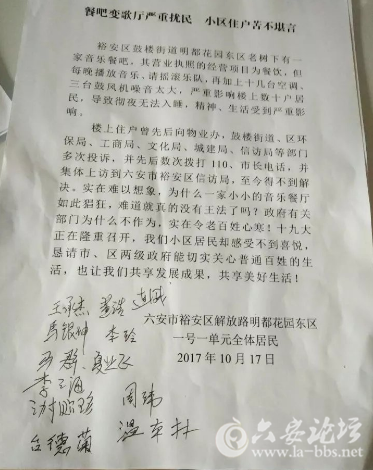 餐吧变歌厅严重扰民 小区住户苦不堪言
裕安区鼓楼街道明都花园东区老树下有
一家音乐餐吧，其营业执照的经营项目为餐饮，但
每晚播放音乐、请摇滚乐队，再加上十几台空调、
三台鼓风机噪音太大，严重影响楼上数十户居
民，导致彻夜无法入睡，精神、生活受到严重影
响。
楼上住户曾先后向物业办，鼓楼街道、区环
保局、工商局、文化局、城建局、信访局等部门
多次投诉，并先后数次拨打 110、市长电话，并
集体上访到六安市裕安区信访局，至今得不到解
决。实在难以想象，为什么一家小小的音乐餐厅
如此猖狂，难道就真的没有王法了吗？政府有关
部门为什么不作为，实在令老百姓心寒！十九大
正在隆重召开，我们小区居民却感受不到喜悦，
恳请市、区两级政府能切实关心普通百姓的生
活，也让我们共享发展成果，共享美好生活！
六安市裕安区解放路明都花园东区
一号一单元全体居民
2017 年 10 月 17 日
马银坤 李玲
周玮
台德菊
六安论坛
www.la-bbs.net